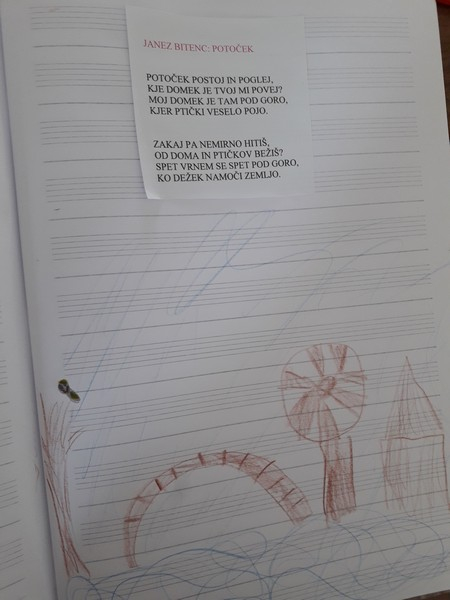 JANEZ BITENC: POTOČEK
POTOČEK POSTOJ IN POGLEJ,
KJE DOMEK JE TVOJ MI POVEJ?
MOJ DOMEK JE TAM POD GORO,
KJER PTIČKI VESELO POJO.
ZAKAJ PA NEMIRNO HITIŠ,
OD DOMA IN PTIČKOV BEŽIŠ?
SPET VRNEM SE SPET POD GORO,
KO DEŽEK NAMOČI ZEMLJO.